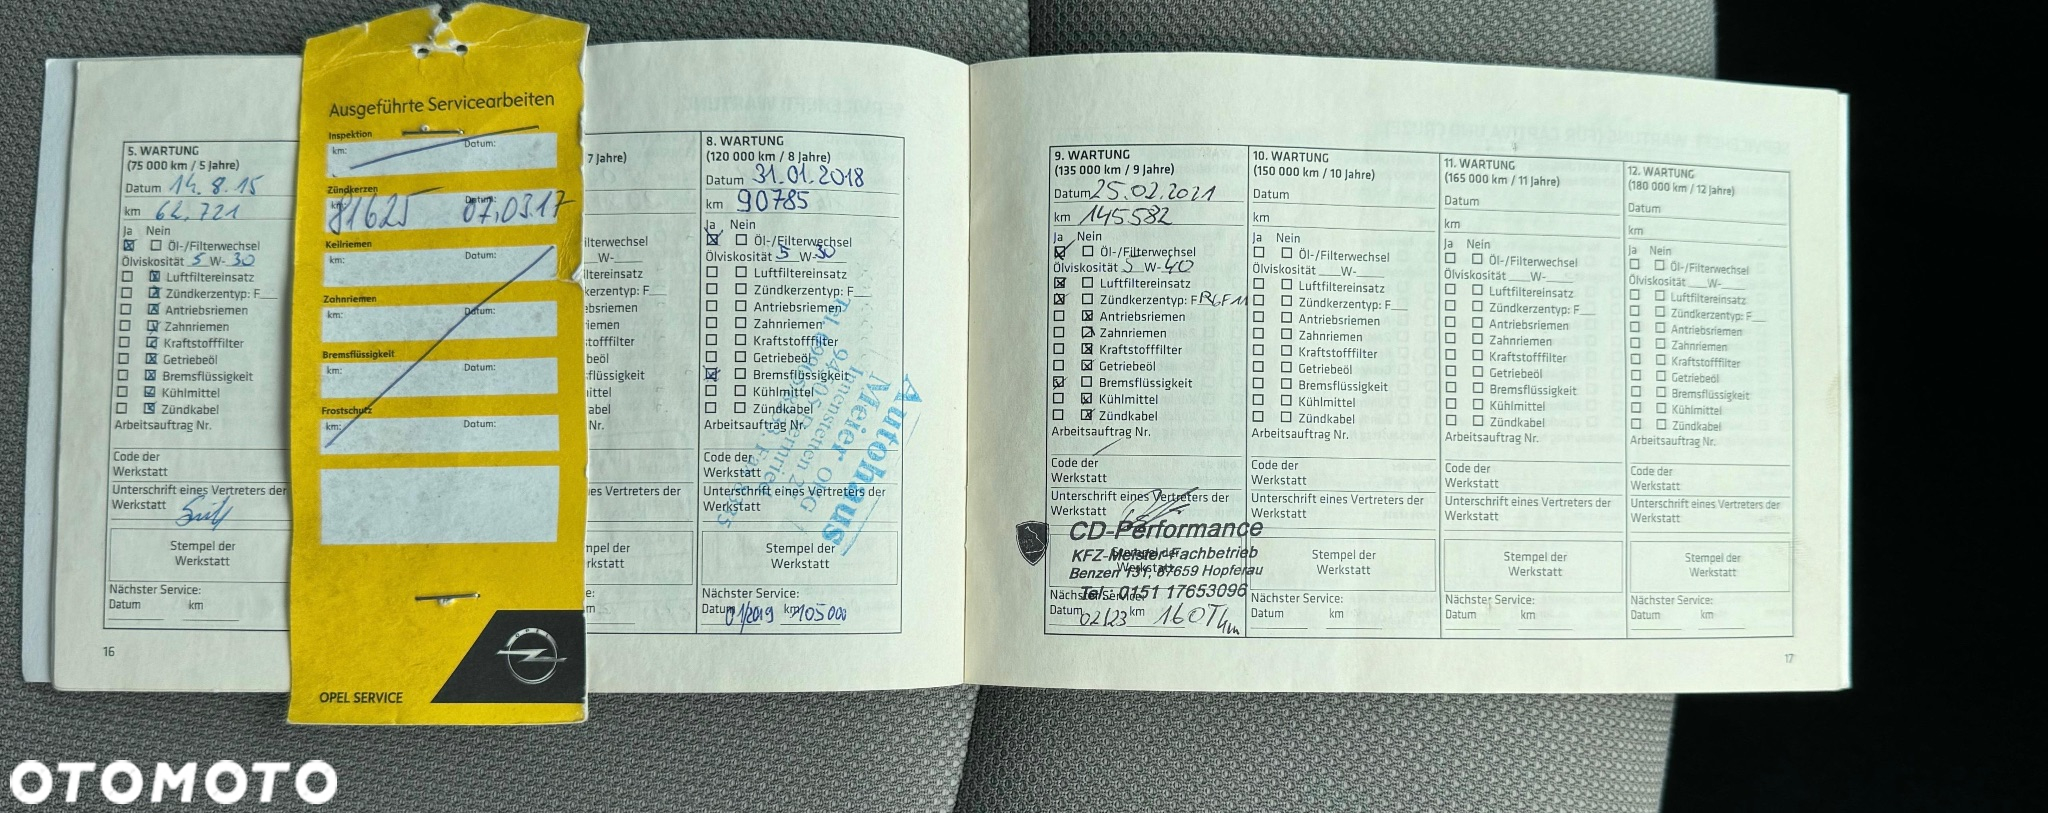 Ausgeführte Servicearbeiten
Inspektion
km: Datum:
Zündkerzen
km: Datum:
81625 07.03.17
Keilriemen
km: Datum:
Zahnriemen
km: Datum:
Bremsflüssigkeit
km: Datum:
Frostschutz
km: Datum:
OPEL
OPEL SERVICE
5. WARTUNG
(75 000 km / 5 Jahre)
Datum 14.8.15
km 62.721
Ja Nein
Öl-/Filterwechsel
Ölviskosität 5 W- 30
Luftfiltereinsatz
Zündkerzentyp: F
Antriebsriemen
Zahnriemen
Kraftstofffilter
Getriebeöl
Bremsflüssigkeit
Kühlmittel
Zündkabel
Arbeitsauftrag Nr.
Code der
Werkstatt
Unterschrift eines Vertreters der
Werkstatt
Stempel der
Werkstatt
Nächster Service:
Datum km
16
7 Jahre)
8. WARTUNG
(120 000 km / 8 Jahre)
Datum 31.01.2018
km 90785
Ja Nein
Öl-/Filterwechsel
Ölviskosität 5 W- 30
Luftfiltereinsatz
Zündkerzentyp: F
Antriebsriemen
Zahnriemen
Kraftstofffilter
Getriebeöl
Bremsflüssigkeit
Kühlmittel
Zündkabel
Arbeitsauftrag Nr.
Code der
Werkstatt
Unterschrift eines Vertreters der
Werkstatt
Autohaus
Meier OHG
Stempel der
Werkstatt
Nächster Service:
Datum 01/2019 km 105000
9. WARTUNG
(135 000 km / 9 Jahre)
Datum 25.02.2021
km 145582
Ja Nein
Öl-/Filterwechsel
Ölviskosität 5 W- 40
Luftfiltereinsatz
Zündkerzentyp: F
Antriebsriemen
Zahnriemen
Kraftstofffilter
Getriebeöl
Bremsflüssigkeit
Kühlmittel
Zündkabel
Arbeitsauftrag Nr.
Code der
Werkstatt
Unterschrift eines Vertreters der
Werkstatt
CD-Performance
KFZ-Meister-Fachbetrieb
Benzen 131, 87659 Hopferau
Tel.: 0151 17653096
Stempel der
Werkstatt
Nächster Service:
Datum 02/23 km 160Tkm
10. WARTUNG
(150 000 km / 10 Jahre)
Datum
km
Ja Nein
Öl-/Filterwechsel
Ölviskosität W-
Luftfiltereinsatz
Zündkerzentyp: F
Antriebsriemen
Zahnriemen
Kraftstofffilter
Getriebeöl
Bremsflüssigkeit
Kühlmittel
Zündkabel
Arbeitsauftrag Nr.
Code der
Werkstatt
Unterschrift eines Vertreters der
Werkstatt
Stempel der
Werkstatt
Nächster Service:
Datum km
11. WARTUNG
(165 000 km / 11 Jahre)
Datum
km
Ja Nein
Öl-/Filterwechsel
Ölviskosität W-
Luftfiltereinsatz
Zündkerzentyp: F
Antriebsriemen
Zahnriemen
Kraftstofffilter
Getriebeöl
Bremsflüssigkeit
Kühlmittel
Zündkabel
Arbeitsauftrag Nr.
Code der
Werkstatt
Unterschrift eines Vertreters der
Werkstatt
Stempel der
Werkstatt
Nächster Service:
Datum km
12. WARTUNG
(180 000 km / 12 Jahre)
Datum
km
Ja Nein
Öl-/Filterwechsel
Ölviskosität W-
Luftfiltereinsatz
Zündkerzentyp: F
Antriebsriemen
Zahnriemen
Kraftstofffilter
Getriebeöl
Bremsflüssigkeit
Kühlmittel
Zündkabel
Arbeitsauftrag Nr.
Code der
Werkstatt
Unterschrift eines Vertreters der
Werkstatt
Stempel der
Werkstatt
Nächster Service:
Datum km
17
OTOMOTO